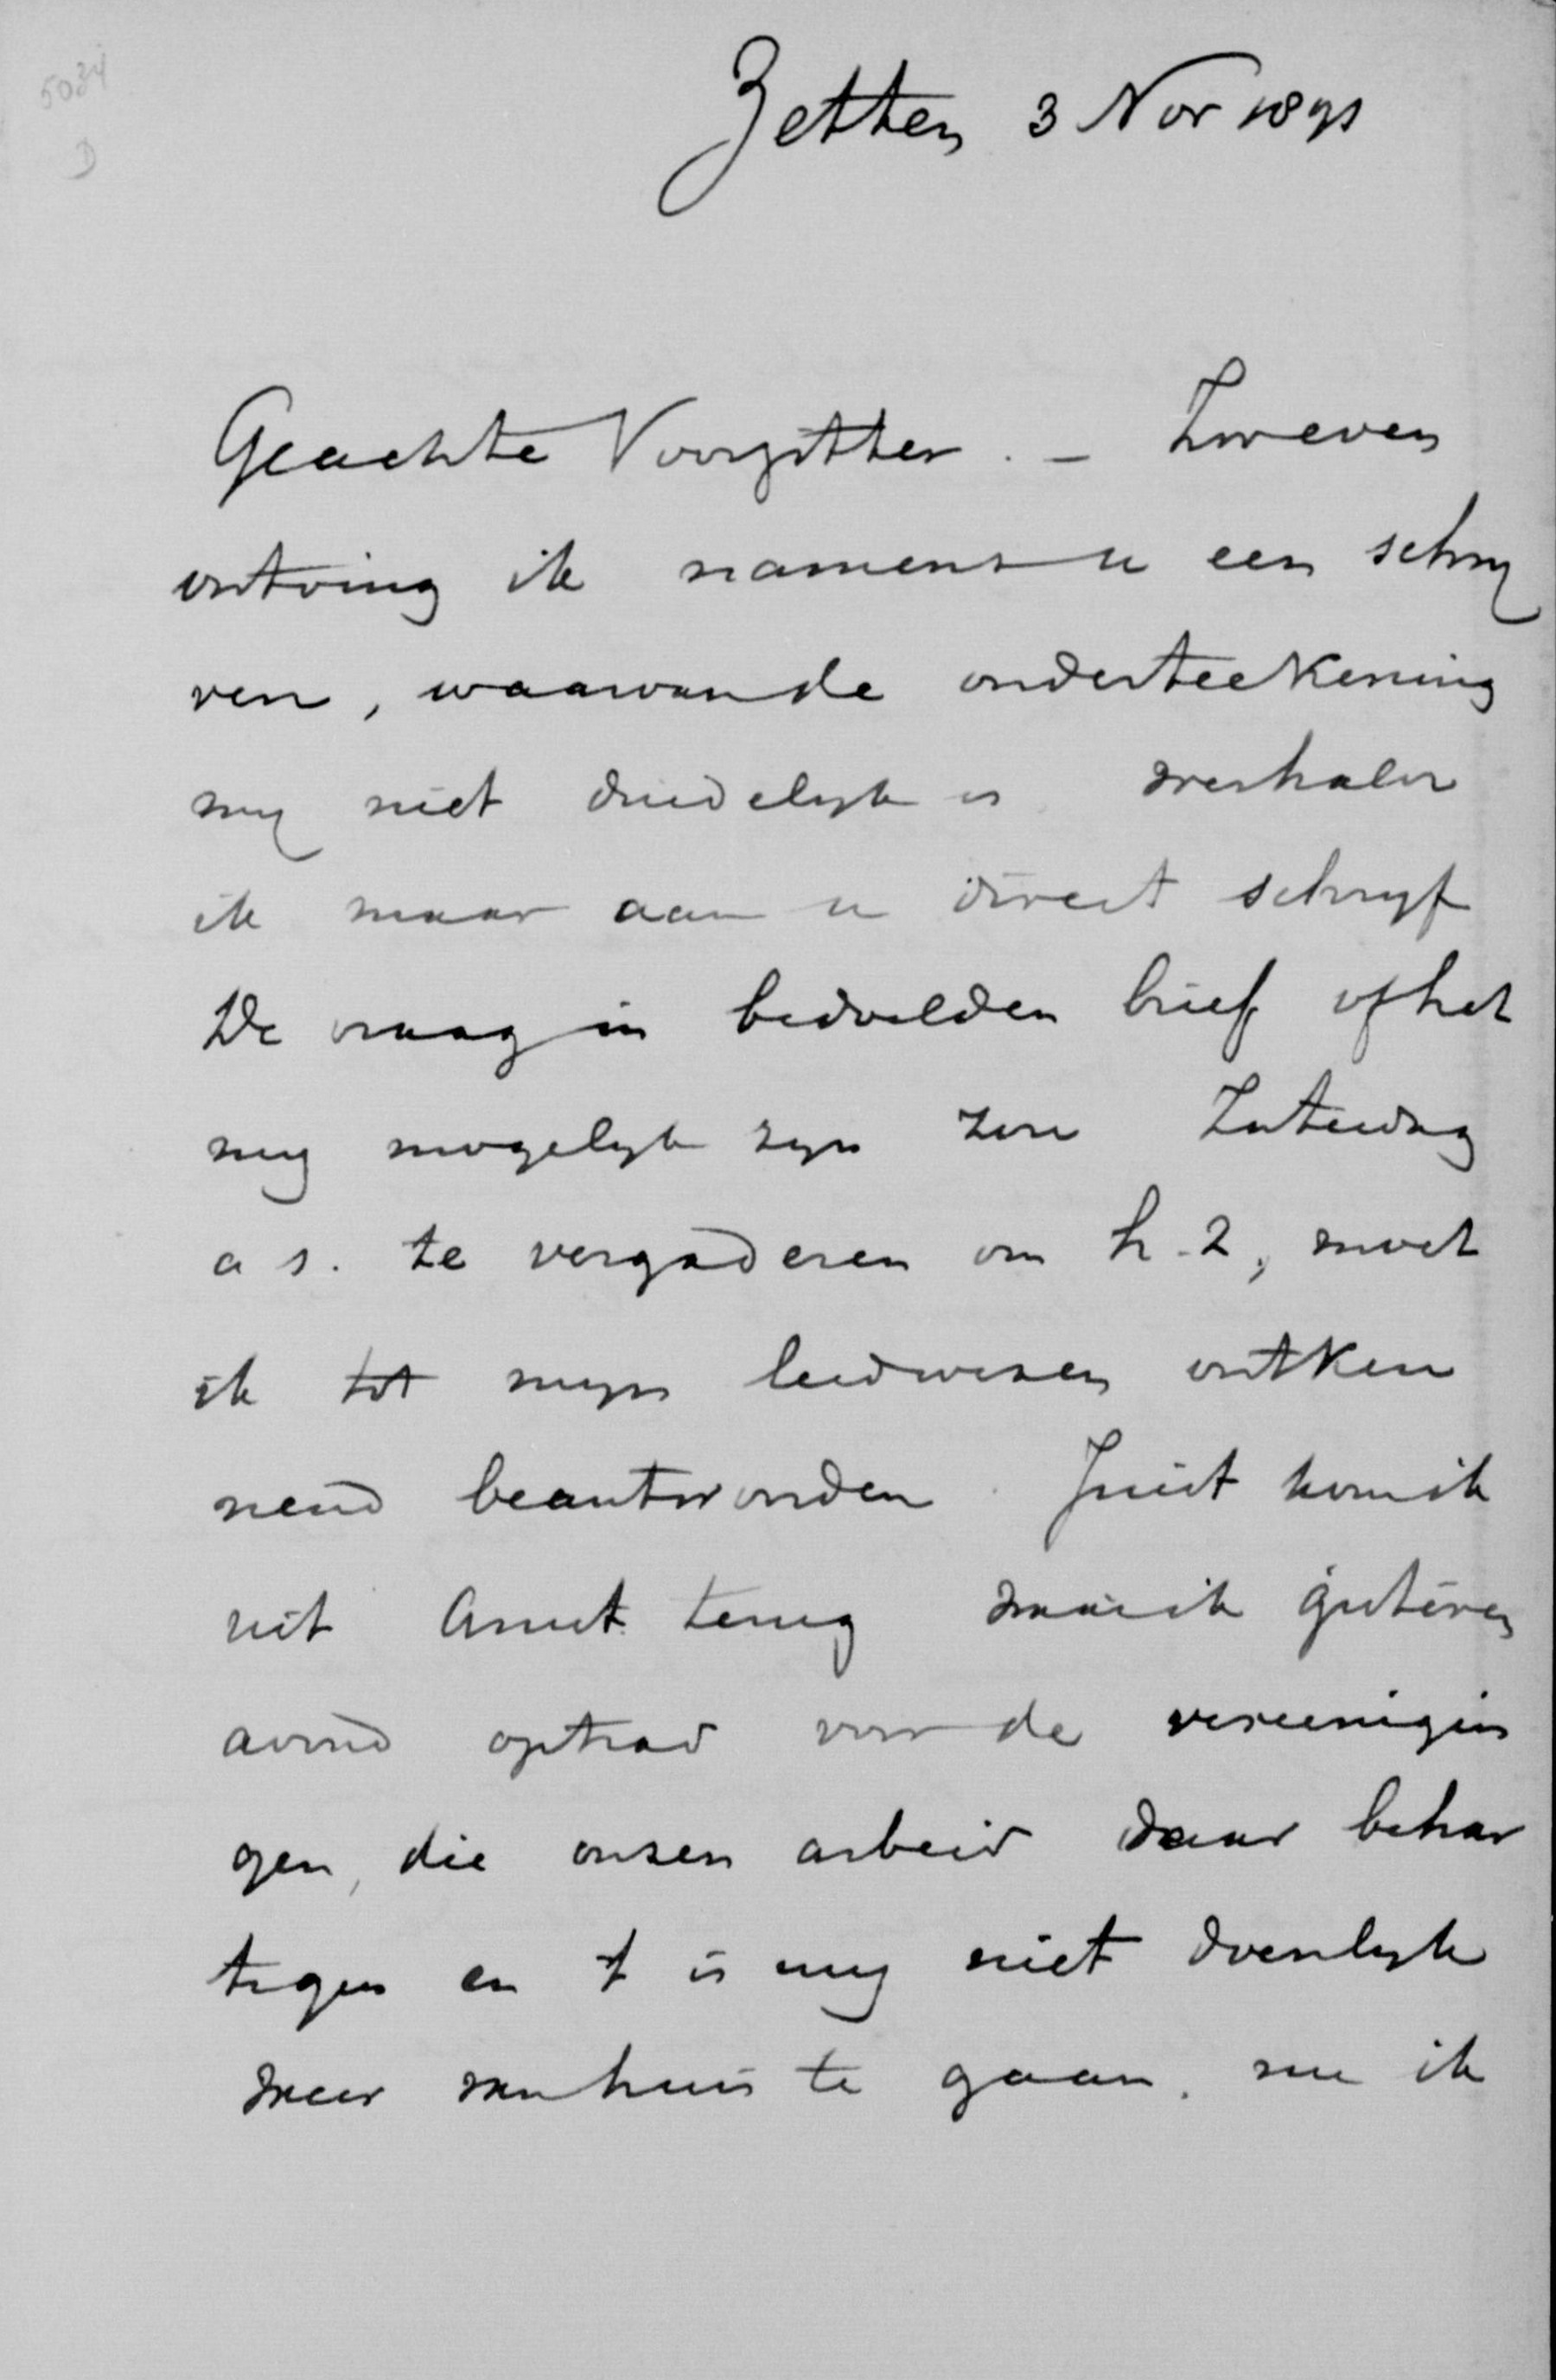 5034
D
Zetten 3 Nov 1891
Geachte Voorzitter. – Zoo even
ontving ik namens u een schrij
ven, waarvan de onderteekening
mij niet duidelijk is weshalve
ik maar aan u direct schrijf
De vraag in bedoelden brief of het
mij mogelijk zijn zou Zaterdag
a s. te vergaderen om h. 2, moet
ik tot mijn leedwezen ontken
nend beantwoorden. Juist kom ik
uit Amst. terug waar ik gisteren
avond optrad voor de vereenigin
gen, die onzen arbeid daar behar
tigen en 't is mij niet doenlijk
weer van huis te gaan. nu ik